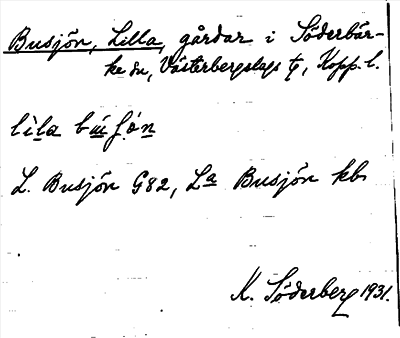 Busjön, Lilla, gårdar i Söderbär-
ke sn, Västerbergslags tg, Kopp. l.
lila búʃön
L. Busjön G82, La Busjön kb
K. Söderberg 1931.